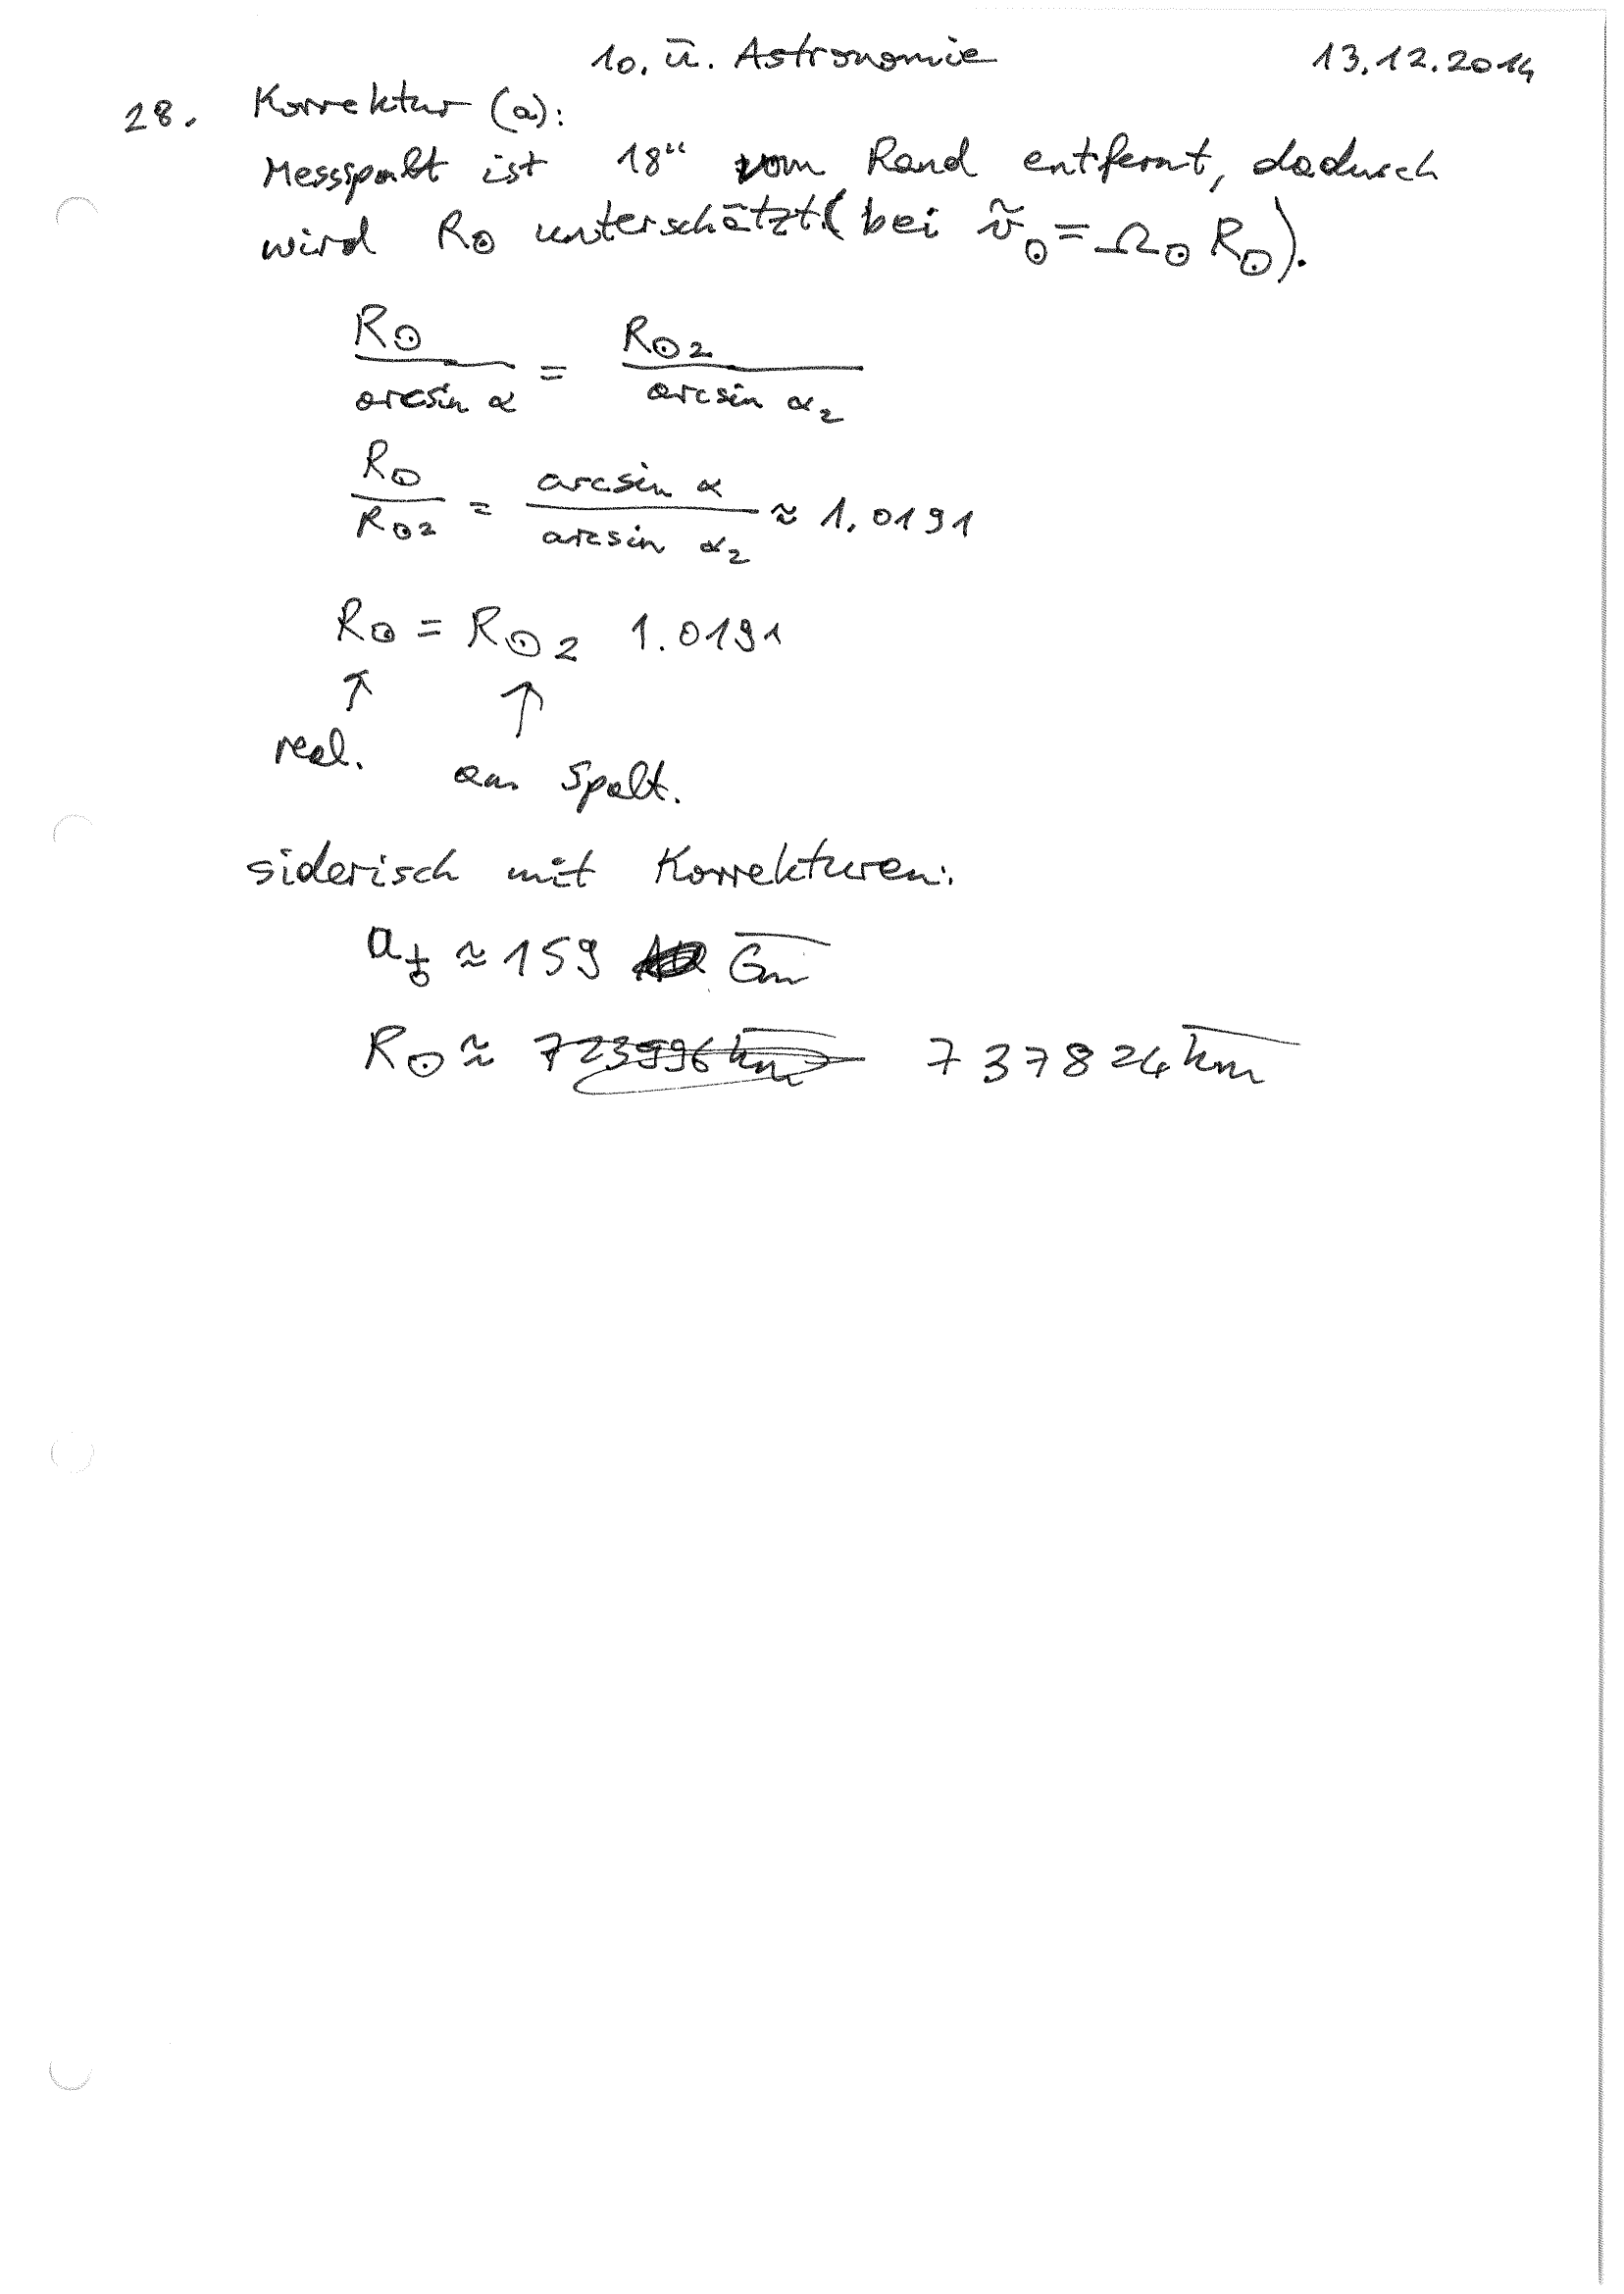 10. Ü. Astronomie 13.12.2014
28. Korrektur (a):
Messspalt ist 18" vom Rand entfernt, dadurch
wird R☉ unterschätzt (bei ṽ☉ = Ω☉ R☉).
R☉ / arcsin α = R☉2 / arcsin α₂
R☉ / R☉2 = arcsin α / arcsin α₂ ≈ 1.0191
R☉ = R☉2 1.0191
↑ ↑
real. am Spalt.
siderisch mit Korrekturen:
a♁ ≈ 159 Gm
R☉ ≈ 723996 km 737824 km